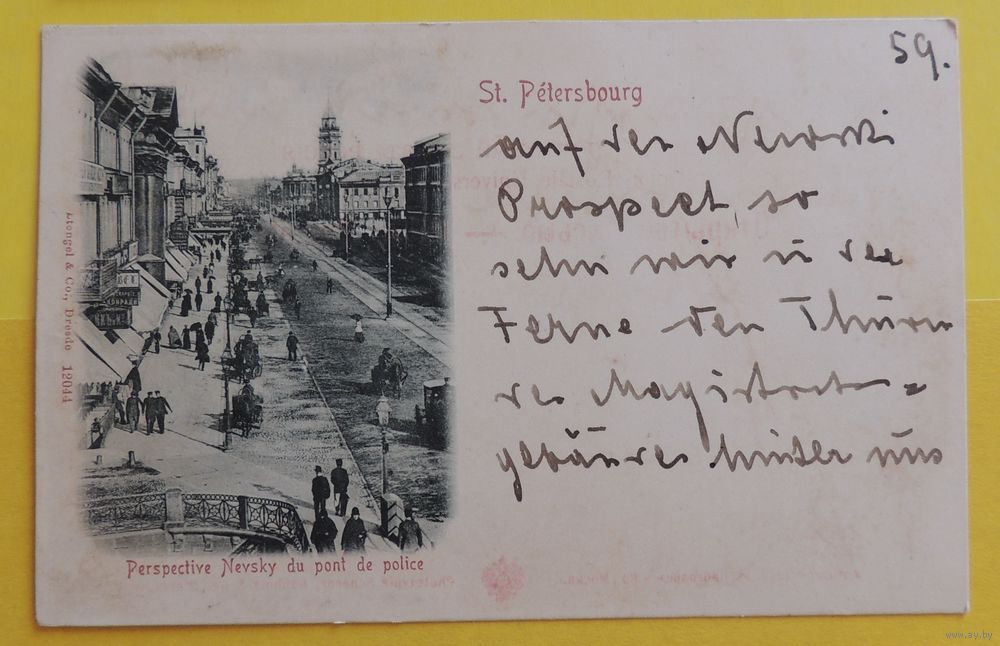 59.
St. Pétersbourg
auf den Newski
Prospect, so
sehn wir in der
Ferne den Thurm
des Magistrats=
gebäudes hinter uns
Stengel & Co., Dresde 12044
Perspective Nevsky du pont de police
www.ay.by